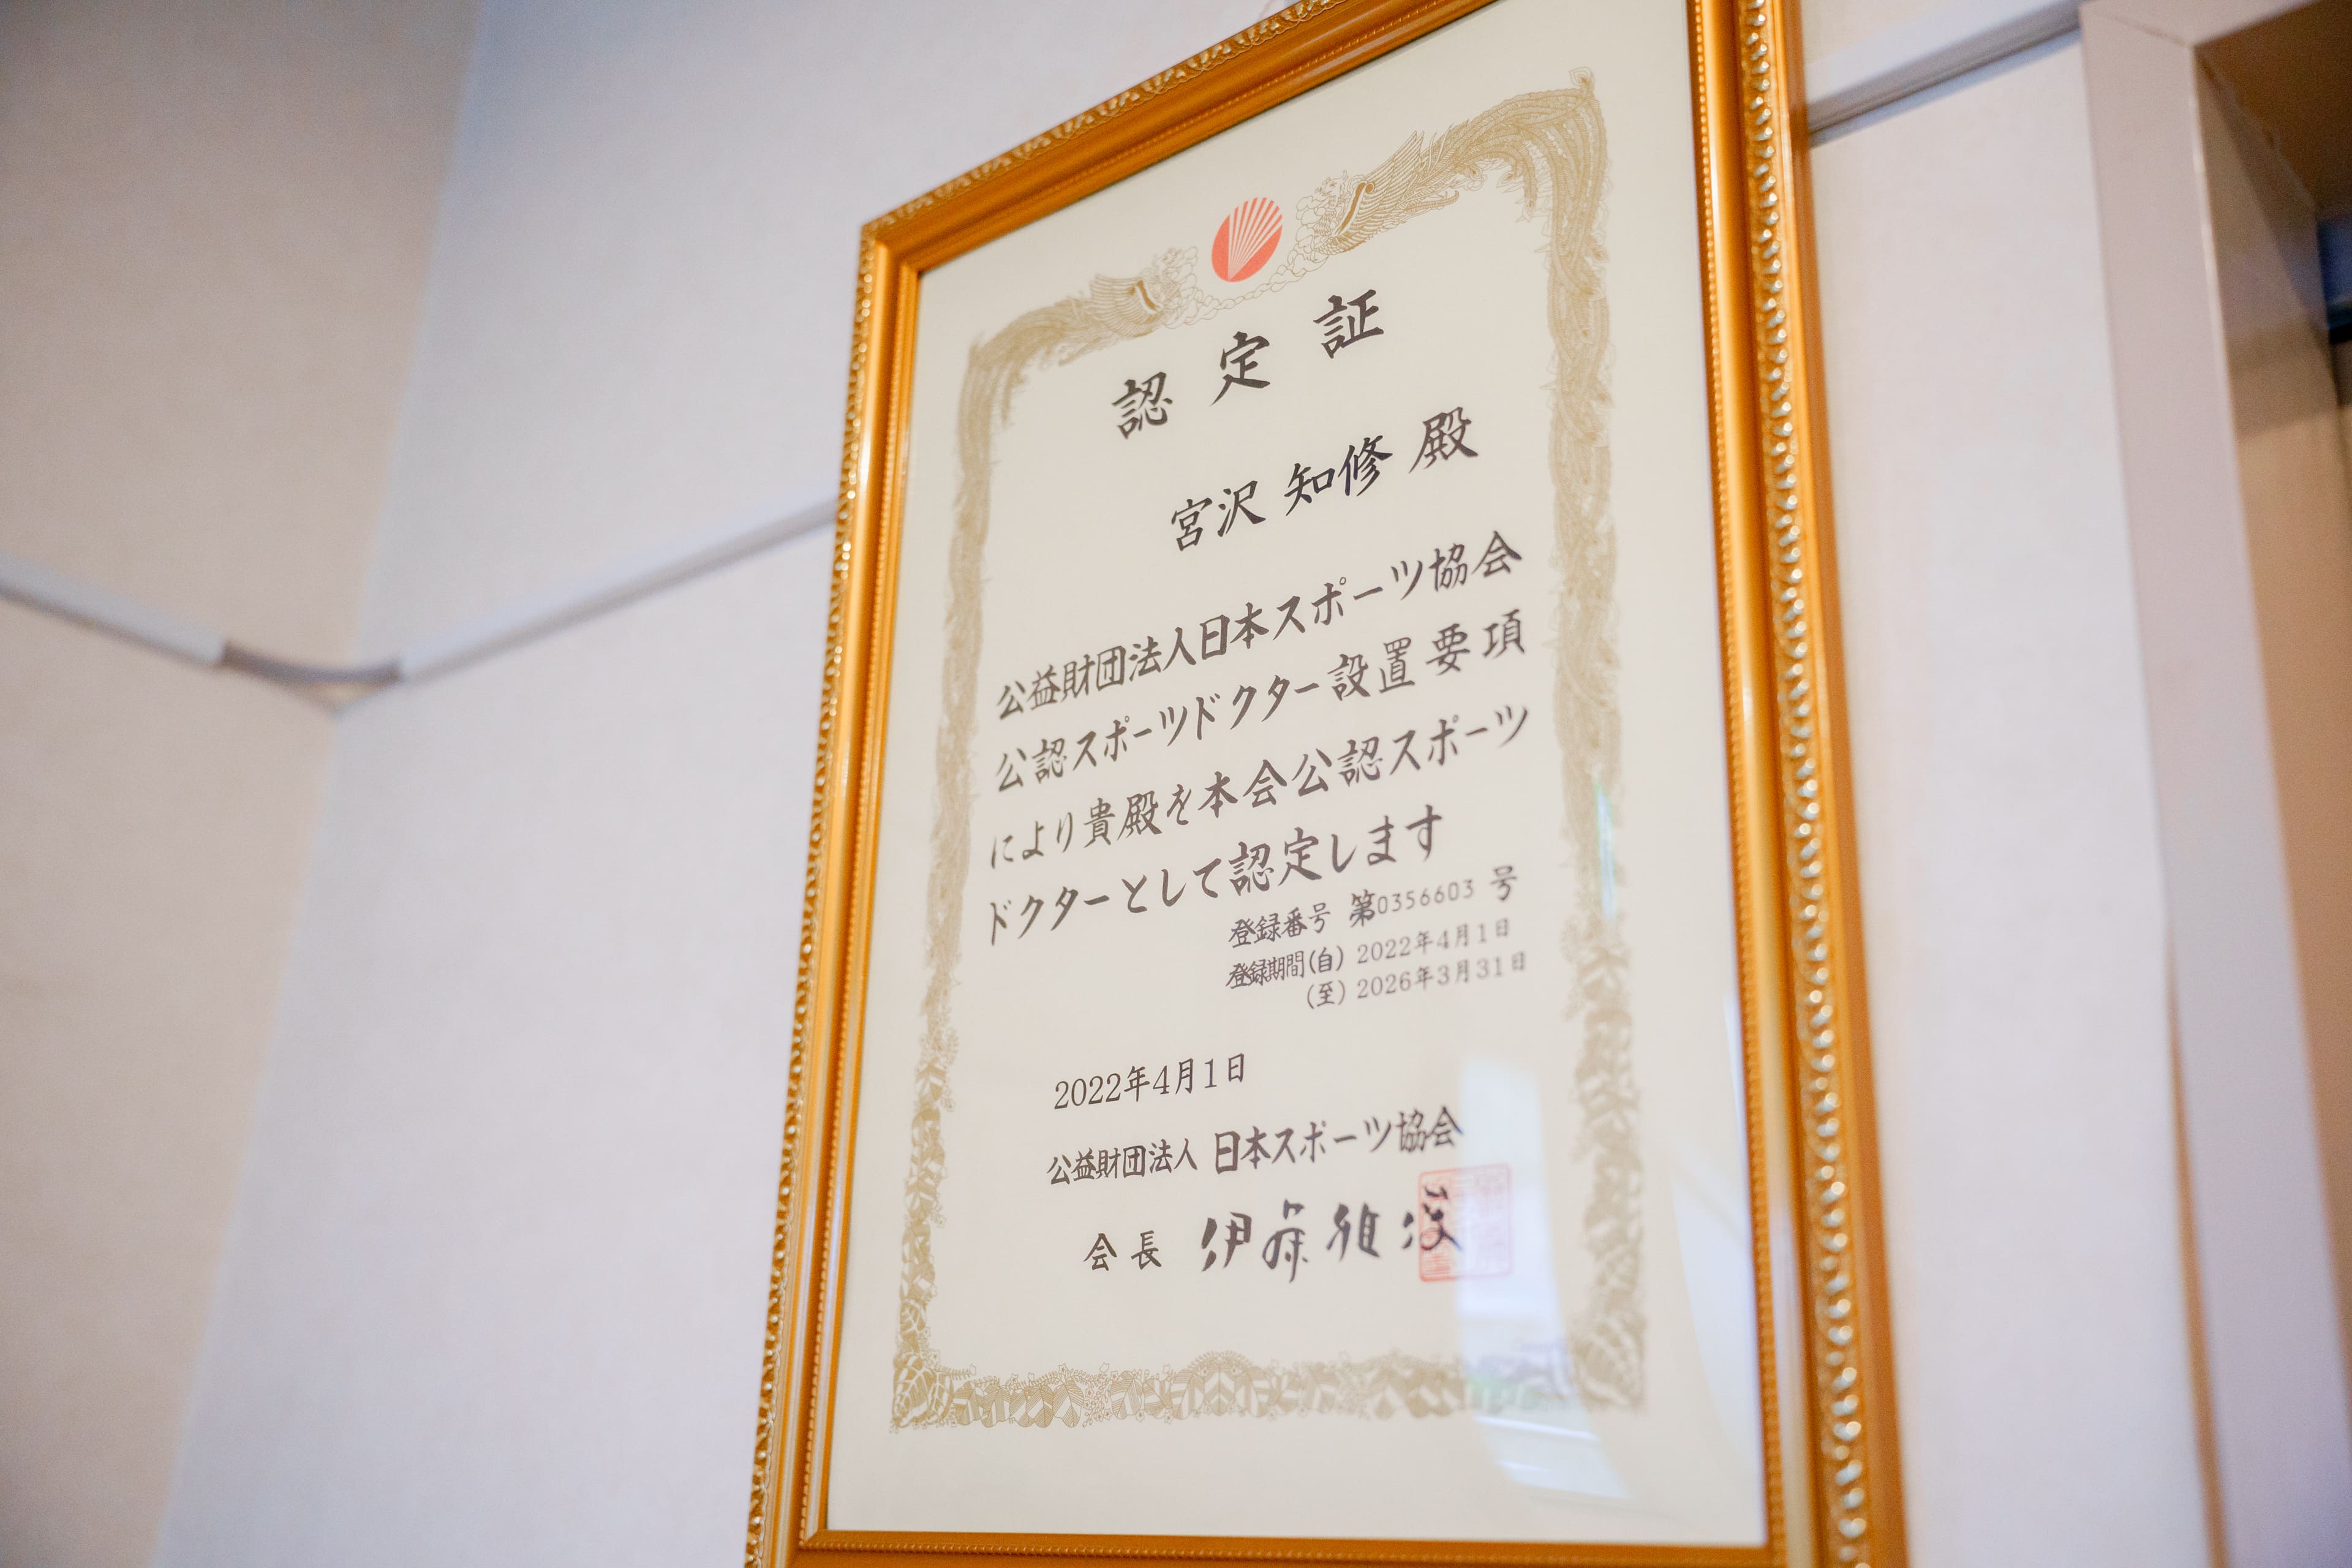 認定証
宮沢 知修 殿
公益財団法人日本スポーツ協会
公認スポーツドクター設置要項
により貴殿を本会公認スポーツ
ドクターとして認定します
登録番号 第0356603 号
登録期間(自) 2022年4月1日
(至) 2026年3月31日
2022年4月1日
公益財団法人 日本スポーツ協会
会長 伊藤雅俊